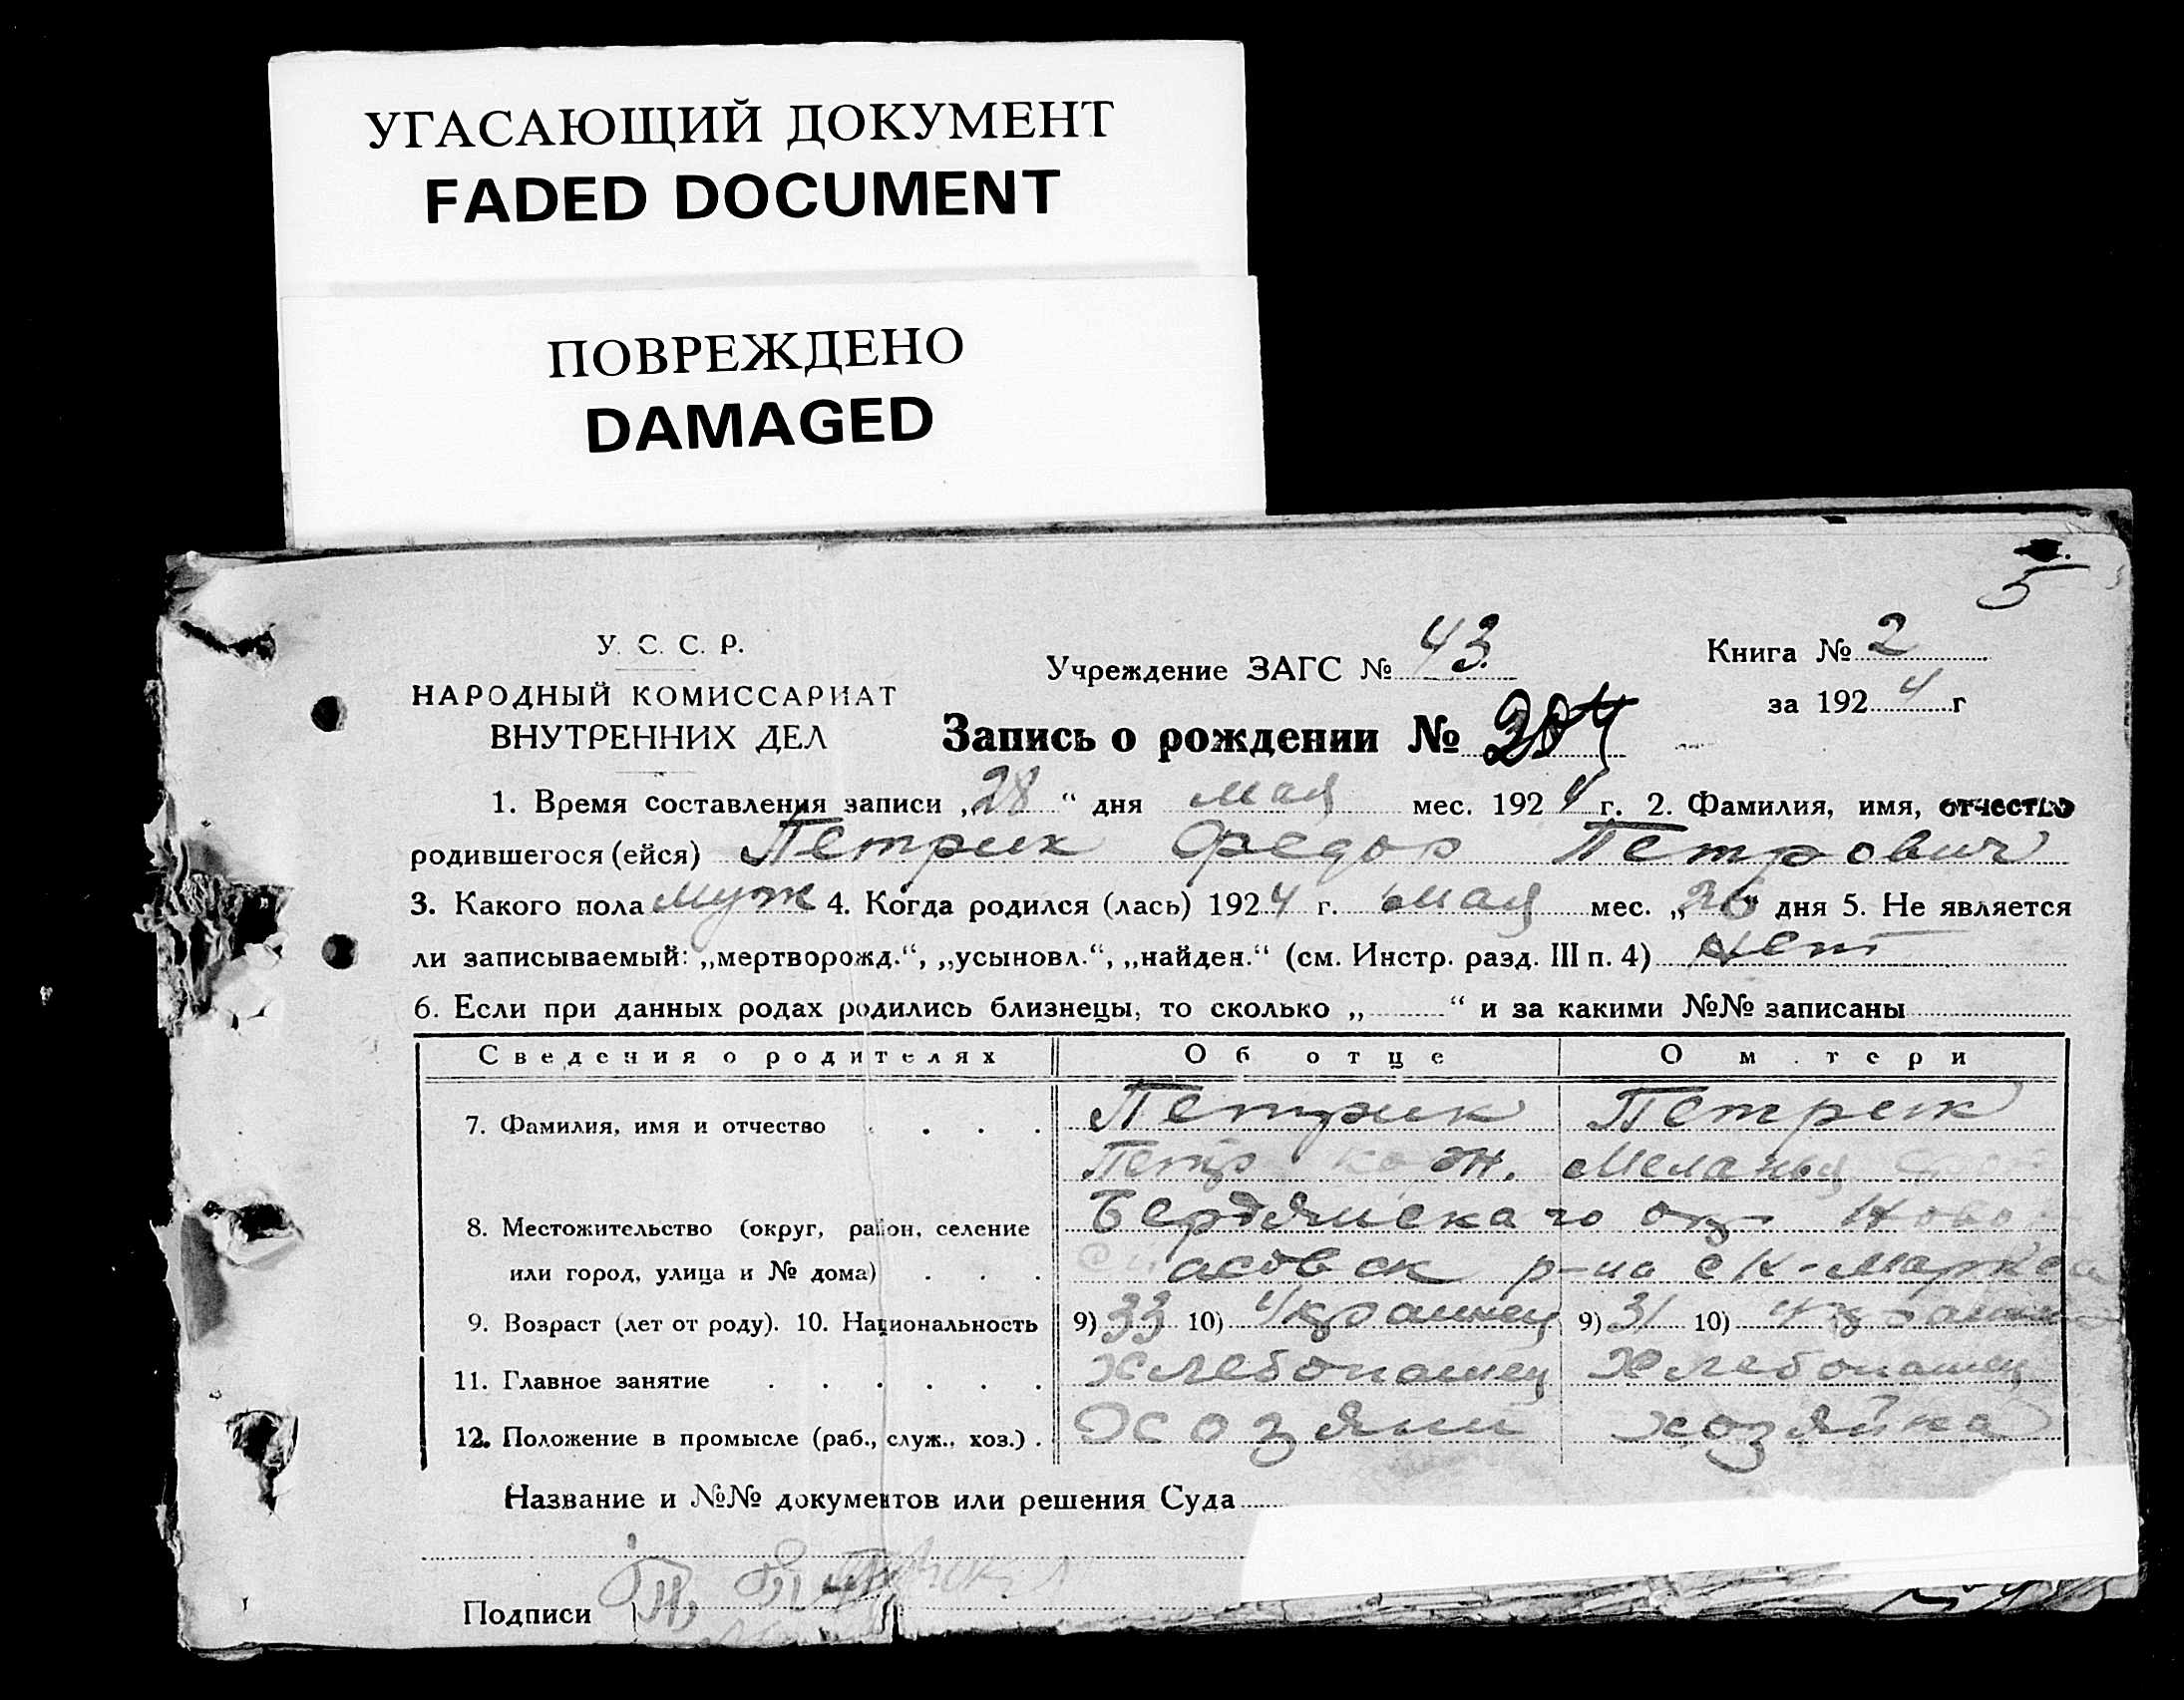 УГАСАЮЩИЙ ДОКУМЕНТ
FADED DOCUMENT
ПОВРЕЖДЕНО
DAMAGED
5
У. С. С. Р.
НАРОДНЫЙ КОМИССАРИАТ
ВНУТРЕННИХ ДЕЛ
Учреждение ЗАГС № 43
Книга № 2
за 1924 г
Запись о рождении № 204
1. Время составления записи „28“ дня мая мес. 1924 г. 2. Фамилия, имя, отчество
родившегося (ейся) Петрик Федор Петрович
3. Какого пола муж 4. Когда родился (лась) 1924 г. мая мес. „26“ дня 5. Не является
ли записываемый: „мертворожд.“, „усыновл.“, „найден.“ (см. Инстр. разд. III п. 4) нет
6. Если при данных родах родились близнецы, то сколько „ “ и за какими №№ записаны
Сведения о родителях Об отце О матери
7. Фамилия, имя и отчество Петрик Петрик
Петр Меланья
8. Местожительство (округ, район, селение Бердянскаго ок Ново
или город, улица и № дома) р-на с К-Маркса
9. Возраст (лет от роду). 10. Национальность 9) 33 10) Украинец 9) 31 10)
11. Главное занятие Хлебопашец Хлебопашец
12. Положение в промысле (раб., служ., хоз.) Хозяин хозяйка
Название и №№ документов или решения Суда
Подписи